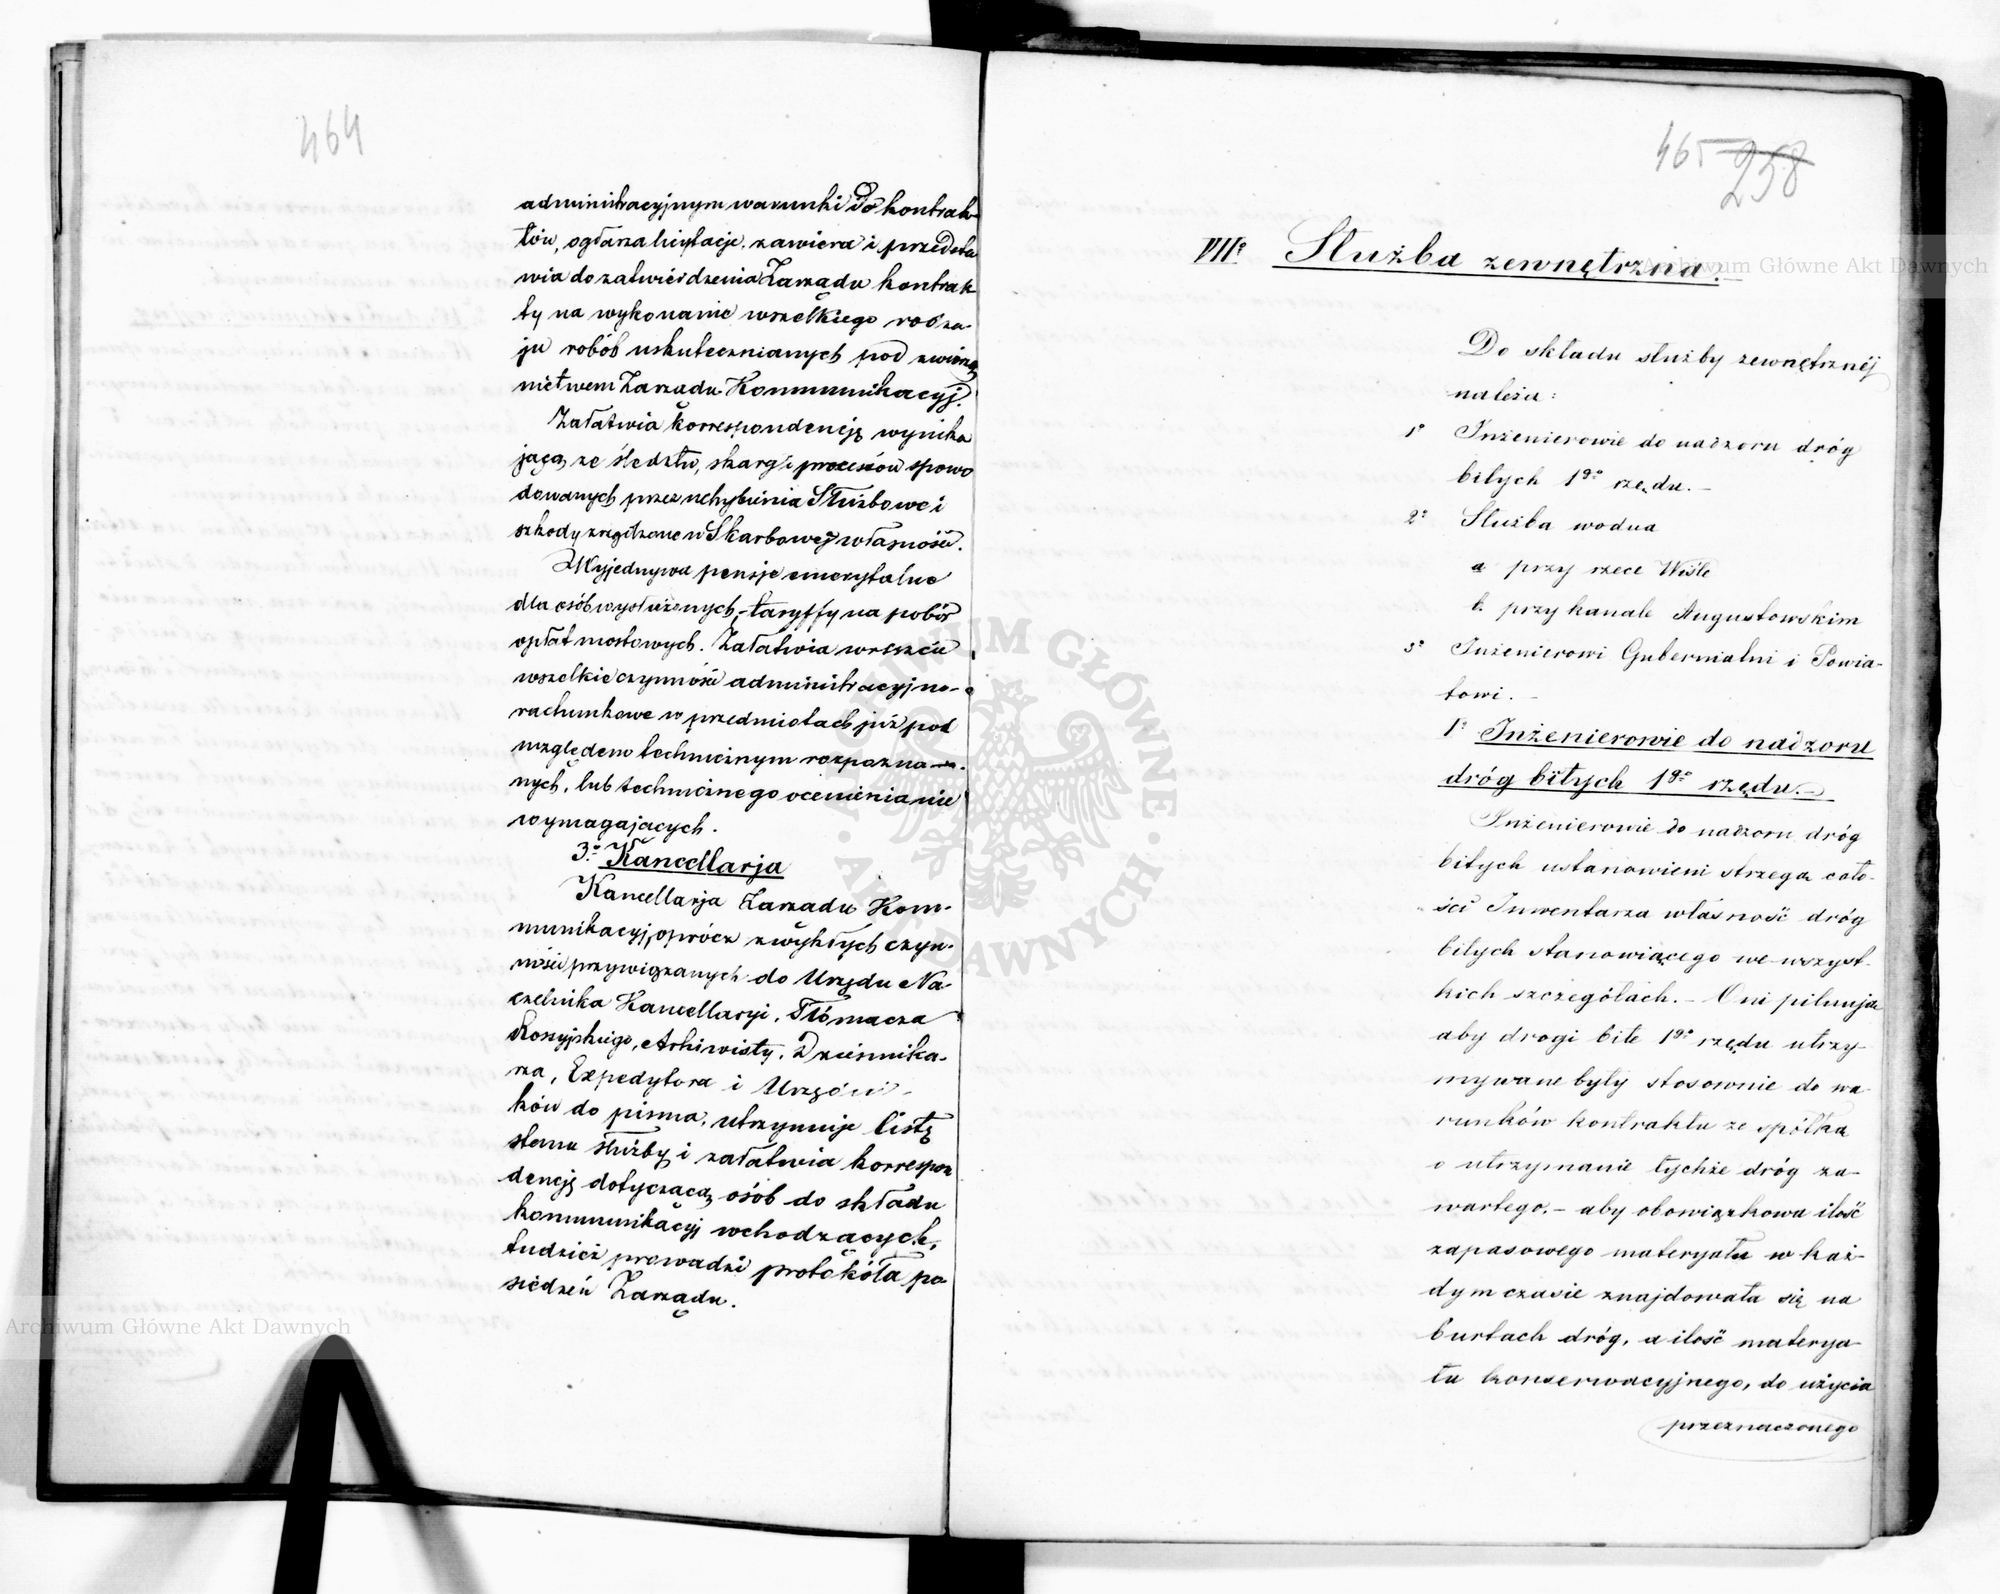 464
administracyjnym warunki do kontrak-
tów, ogłasza licytacje, zawiera i przedsta
wia do zatwierdzenia Zarządu kontrak
ty na wykonanie wszelkiego rodza-
ju robót uskutecznianych pod zwierz
nictwem Zarządu Kommunikacyj.
Załatwia korrespondencję wynika
jącą ze śledztw, skarg i processów spowo
dowanych przez uchybienia Służbowe i
szkody zrządzone w Skarbowej własności.
Wyjednywa pensje emerytalne
dla osób wysłużonych, taryffy na pobór
opłat mostowych. Załatwia wreszcie
wszelkie czynności administracyjno-
rachunkowe w przedmiotach już pod
względem technicznym rozpozna-
nych, lub technicznego ocenienia nie
wymagających.
3o. Kancellarja
Kancellarja Zarządu Kom-
munikacyj, oprócz zwykłych czyn-
ności przywiązanych do Urzędu Na-
czelnika Kancellaryi, Tłómacza
Rossyjskiego, Archiwisty, Dziennika-
rza, Expedytora i Urzędni-
ków do pisma, utrzymuje listę
stanu służby i załatwia korrespon
dencję dotyczącą osób do składu
kommunikacyj wchodzących,
tudzież prowadzi protokóła po
siedzeń Zarządu.
465 258
VIIo Służba zewnętrzna.
Do składu służby zewnętrznéj
należą:
1o Inżenierowie do nadzoru dróg
bitych 1go rzędu.-
2o Służba wodna
a przy rzece Wiśle
b. przy kanale Augustowskim
3o Inżenierowi Gubernialni i Powia-
towi.-
1o Inżenierowie do nadzoru
dróg bitych 1go rzędu.-
Inżenierowie do nadzoru dróg
bitych ustanowieni strzegą cało-
ści Inwentarza własność dróg
bitych stanowiącego we wszyst-
kich szczegółach.- Oni pilnują
aby drogi bite 1go rzędu utrzy-
mywane były stosownie do wa-
runków kontraktu ze spółką
o utrzymanie tychże dróg za-
wartego.- aby obowiązkowa ilość
zapasowego materyału w każ-
dym czasie znajdowała się na
burtach dróg, a ilość materya-
łu konserwacyjnego, do użycia
przeznaczonego
Archiwum Główne Akt Dawnych
Archiwum Główne Akt Dawnych
ARCHIWUM GŁÓWNE · AKT DAWNYCH ·